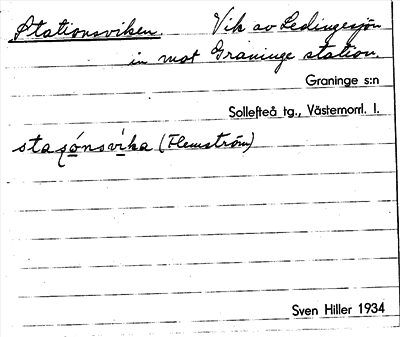 Stationsviken. Vik av Ledingesjön
in mot Graninge station.
Graninge s:n
Sollefteå tg., Västernorrl. l.
staʃónsvíka (Flemström)
Sven Hiller 1934